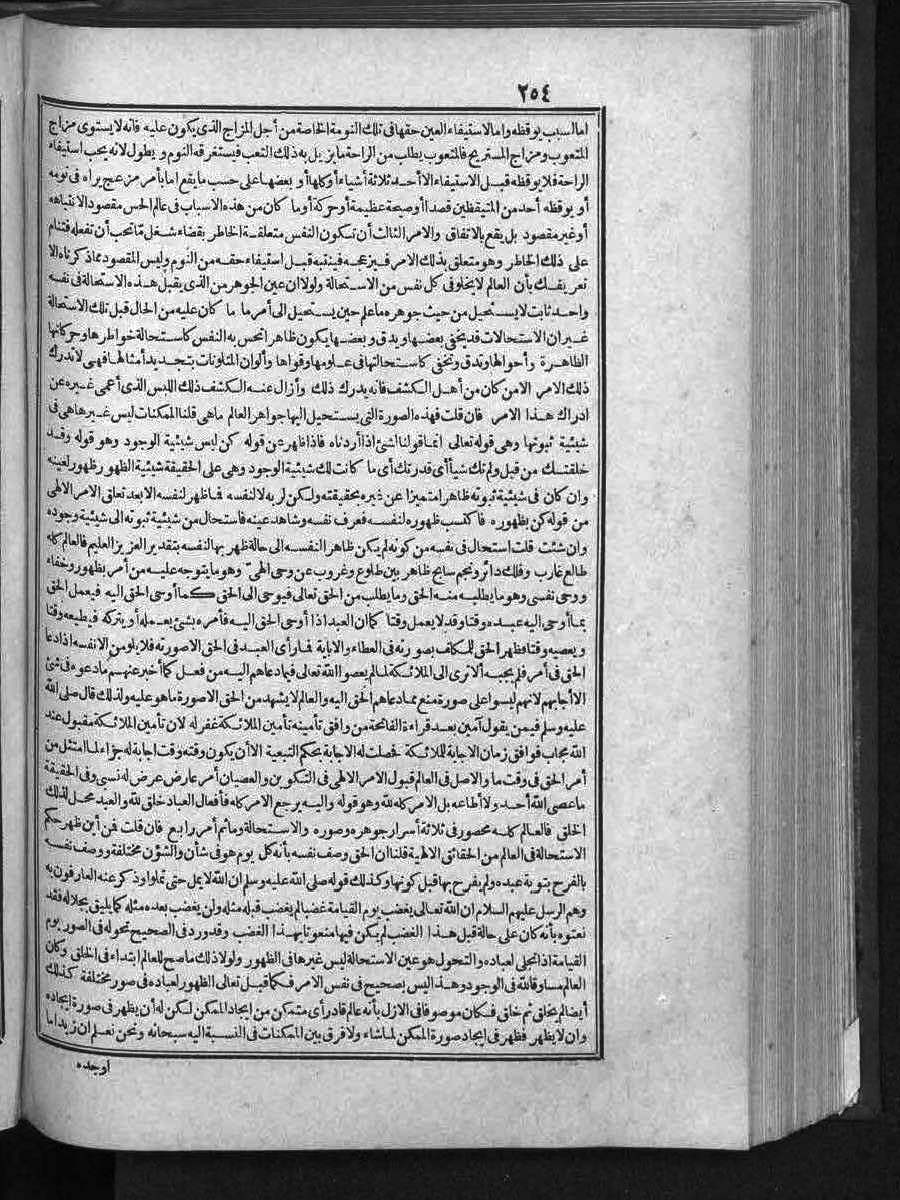 ٢٥٤
اما السبب يوقظه واما لاستيفاء العين حقها فى تلك النومة الخاصة من أجل المزاج الذى يكون عليه فانه لا يستوى مزاج
المتعوب ومزاج المستريح فالمتعوب يطلب من الراحة ما يزيل به ذلك التعب فيستغرقه النوم و يطول لانه يحب استيفاء
الراحة فلا يوقظه قبل الاستيفاء الا أحد ثلاثة أشياء أو كلها أو بعضها على حسب ما يقع اما بأمر مزعج يراه فى نومه
أو يوقظه أحد من المتيقظين قصدا أو صيحة عظيمة أو حركة أو ما كان من هذه الاسباب فى عالم الحس مقصود الانتباهه
أو غير مقصود بل يقع بالاتفاق والامر الثالث أن تكون النفس متعلقة الخاطر بقضاء شغل ما تحب أن تفعله فتنام
على ذلك الخاطر وهو متعلق بذلك الامر فيزعجه فينتبه قبل استيفاء حقه من النوم وليس المقصود مما ذكرناه الا
تعريفك بأن العالم لا يخلو فى كل نفس من الاستحالة ولولا ان عين الجوهر من الذى يقبل هذه الاستحالة فى نفسه
واحد ثابت لا يستحيل من حيث جوهره ما علم حين يستحيل الى أمر ما ما كان عليه من الحال قبل تلك الاستحالة
غير ان الاستحالات قد يخفى بعضها ويدق وبعضها يكون ظاهرا تحس به النفس كاستحالة خواطرها وحركاتها
الظاهرة وأحوالها وتدق وتخفى كاستحالتها فى علومها وقواها وألوان المتلونات بتجديد أمثالها فهى لا تدرك
ذلك الامر الا من كان من أهل الكشف فانه يدرك ذلك وأزال عنه الكشف ذلك اللبس الذى أعمى غيره عن
ادراك هذا الامر فان قلت فهذه الصورة التى يستحيل اليها جواهر العالم ماهى قلنا الممكنات ليس غيرها هى فى
شيئية ثبوتها وهى قوله تعالى انما قولنا لشئ اذا أردناه فاذا ظهر عن قوله كن لبس شيئية الوجود وهو قوله وقد
خلقتك من قبل ولم تك شيأ أى قدرتك أى ما كانت لك شيئية الوجود وهى على الحقيقة شيئية الظهور ظهور لعينه
وان كان فى شيئية ثبوته ظاهرا متميزا عن غيره بحقيقته ولكن لربه لا لنفسه فما ظهر لنفسه الا بعد تعلق الامر الالهى
من قوله كن بظهوره فاكتسب ظهوره لنفسه فعرف نفسه وشاهد عينه فاستحال من شيئية ثبوته الى شيئية وجوده
وان شئت قلت استحال فى نفسه من كونه لم يكن ظاهرا لنفسه الى حالة ظهر بها لنفسه بتقدير العزيز العليم فالعالم كله
طالع غارب وفلك دائر ونجم سابح ظاهر بين طلوع وغروب عن وحى الهىّ وهو ما يتوجه عليه من أمر بظهور وخفاء
ووحى نفسى وهو ما يطلبه منه الحق وما يطلب من الحق تعالى فيوحى الى الحق كما أوحى الحق اليه فيعمل الحق
بما أوحى اليه عبده وقتا وقد لا يعمل وقتا كما ان العبد اذا أوحى الحق اليه فأمره بشئ يعمله أو يتركه فيطيعه وقتا
ويعصيه وقتا فظهر الحق للمكلف بصورته فى العطاء والاباية فما رأى العبد فى الحق الا صورته فلا يلومن الا نفسه اذا دعا
الحق فى أمر فلم يجبه ألا ترى الى الملائكة لما لم يعصوا الله تعالى فيما دعاهم اليه من فعل كما أخبر عنهم ما دعوه فى شئ
الا أجابهم لانهم ليسوا على صورة منع مما دعاهم الحق اليه والعالم لا يشهد من الحق الا صورة ما هو عليه ولذلك قال صلى الله
عليه وسلم فيمن يقول آمين بعد قراءة الفاتحة من وافق تأمينه تأمين الملائكة غفر له لان تأمين الملائكة مقبول عند
الله مجاب فوافق زمان الاجابة للملائكة فحصلت له الاجابة بحكم التبعية الا أن يكون وقته وقت اجابة له جزاء لما امتثل من
أمر الحق فى وقت ما والاصل فى العالم قبول الامر الالهى فى التكوين والعصيان أمر عارض عرض له نسبى وفى الحقيقة
ما عصى الله أحد ولا أطاعه بل الامر كله لله وهو قوله واليه يرجع الامر كله فأفعال العباد خلق لله والعبد محل لذلك
الخلق فالعالم كله محصور فى ثلاثة أسرار جوهره وصوره والاستحالة وماثم أمر رابع فان قلت فمن أين ظهر حكم
الاستحالة فى العالم من الحقائق الالهية قلنا ان الحق وصف نفسه بأنه كل يوم هو فى شأن والشؤن مختلفة ووصف نفسه
بالفرح بتوبة عبده ولم يفرح بها قبل كونها وكذلك قوله صلى الله عليه وسلم ان الله لا يمل حتى تملوا وذكر عنه العارفون به
وهم الرسل عليهم السلام ان الله تعالى يغضب يوم القيامة غضبا لم يغضب قبله مثله ولن يغضب بعده مثله كما يليق بجلاله فقد
نعتوه بأنه كان على حالة قبل هذا الغضب لم يكن فيها منعوتا بهذا الغضب وقد ورد فى الصحيح تحوله فى الصور يوم
القيامة اذا تجلى لعباده والتحول هو عين الاستحالة ليس غيرها فى الظهور ولولا ذلك ما صح للعالم ابتداء فى الخلق وكان
العالم مساوقا لله فى الوجود وهذا ليس بصحيح فى نفس الامر فكما قبل تعالى الظهور لعباده فى صور مختلفة كذلك
أيضا لم يخلق ثم خلق فكان موصوفا فى الازل بأنه عالم قادر أى متمكن من ايجاد الممكن لكن له أن يظهر فى صورة ايجاده
وان لا يظهر فظهر فى ايجاد صورة الممكن لما شاء ولا فرق بين الممكنات فى النسبة اليه سبحانه ونحن نعلم ان زيدا ما
أوجده